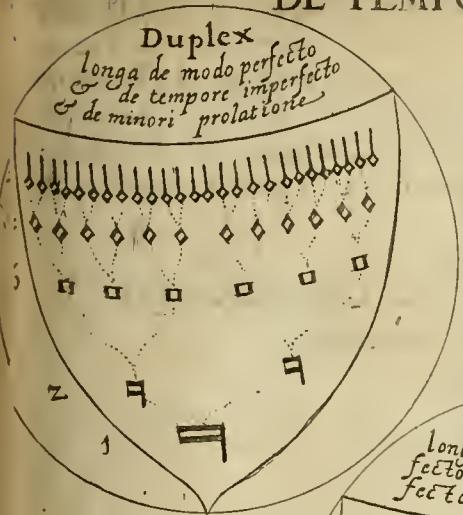 DE TEMPO
Duplex
longa de modo perfecto
& de tempore imperfecto
& de minori prolatione
2
1
long
fecto
fecta